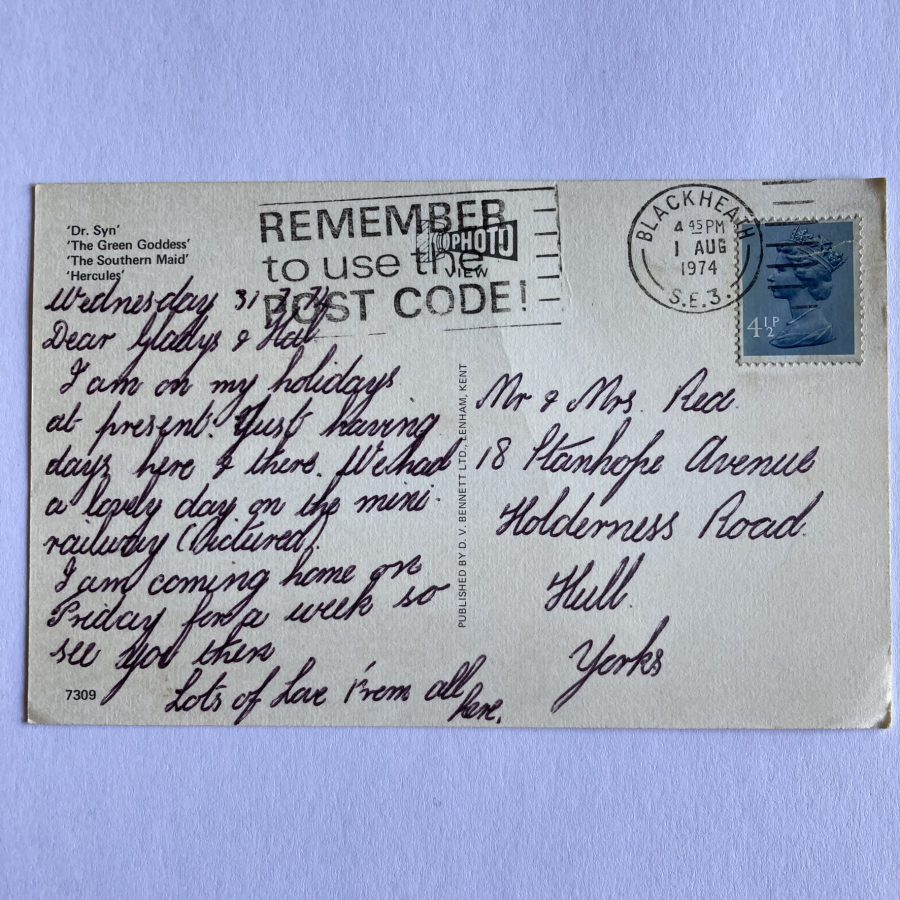 'Dr. Syn'
'The Green Goddess'
'The Southern Maid'
'Hercules'
REMEMBER
to use the
POST CODE!
PHOTO
VIEW
BLACKHEATH
4 45 PM
1 AUG
1974
S.E.3.
4½P
Wednesday 31.7.74
Dear Gladys & Hal
I am on my holidays
at present. Just having
days here & there. We had
a lovely day on the mini-
railway (Pictured).
I am coming home on
Friday for a week so
see you then
Lots of Love From all
here.
7309
PUBLISHED BY D. V. BENNETT LTD., LENHAM, KENT
Mr & Mrs.
18 Stanhope Avenue
Holderness Road.
Hull.
Yorks